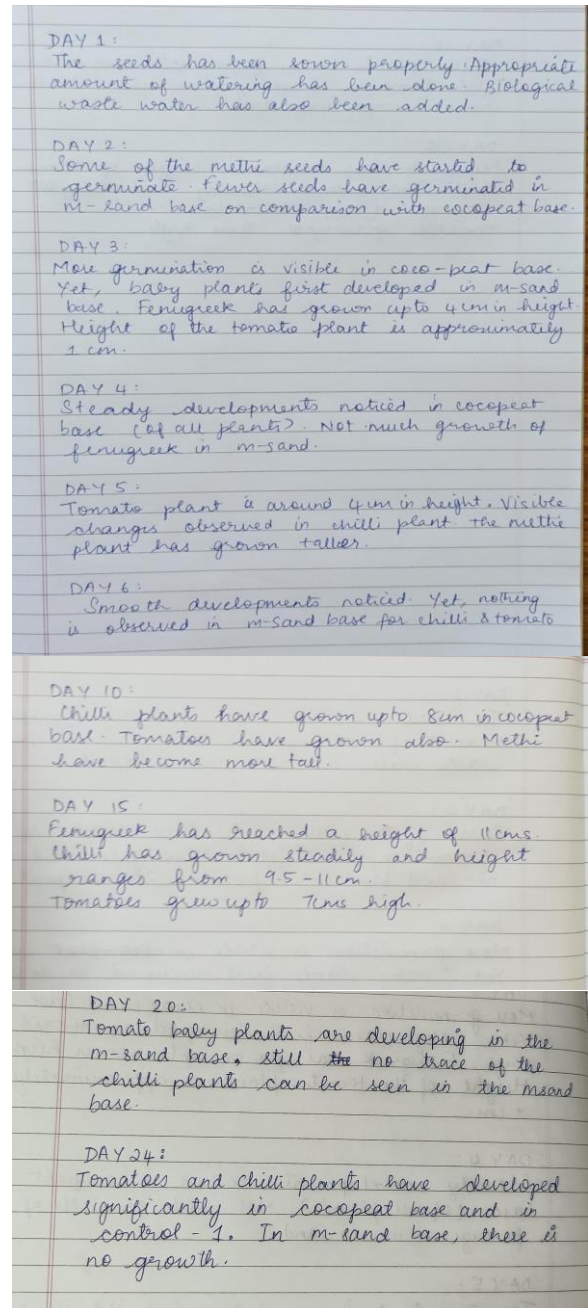 DAY 1:
The seeds has been sown properly. Appropriate
amount of watering has been done. Biological
waste water has also been added.
DAY 2:
Some of the methi seeds have started to
germinate. Fewer seeds have germinated in
m-sand base on comparison with cocopeat base.
DAY 3:
More germination is visible in coco-peat base.
Yet, baby plants first developed in m-sand
base. Fenugreek has grown upto 4cm in height.
Height of the tomato plant is approximately
1 cm.
DAY 4:
Steady developments noticed in cocopeat
base (of all plants). Not much growth of
fenugreek in m-sand.
DAY 5:
Tomato plant is around 4cm in height. Visible
changes observed in chilli plant. the methi
plant has grown taller.
DAY 6:
Smooth developments noticed. Yet, nothing
is observed in m-sand base for chilli & tomato
DAY 10:
Chilli plants have grown upto 8cm in cocopeat
base. Tomatoes have grown also. Methi
have become more tall.
DAY 15:
Fenugreek has reached a height of 11cms.
Chilli has grown steadily and height
ranges from 9.5-11cm.
Tomatoes grew upto 7cms high.
DAY 20:
Tomato baby plants are developing in the
m-sand base. still the no trace of the
chilli plants can be seen in the msand
base.
DAY 24:
Tomatoes and chilli plants have developed
significantly in cocopeat base and in
control-1. In m-sand base, there is
no growth.